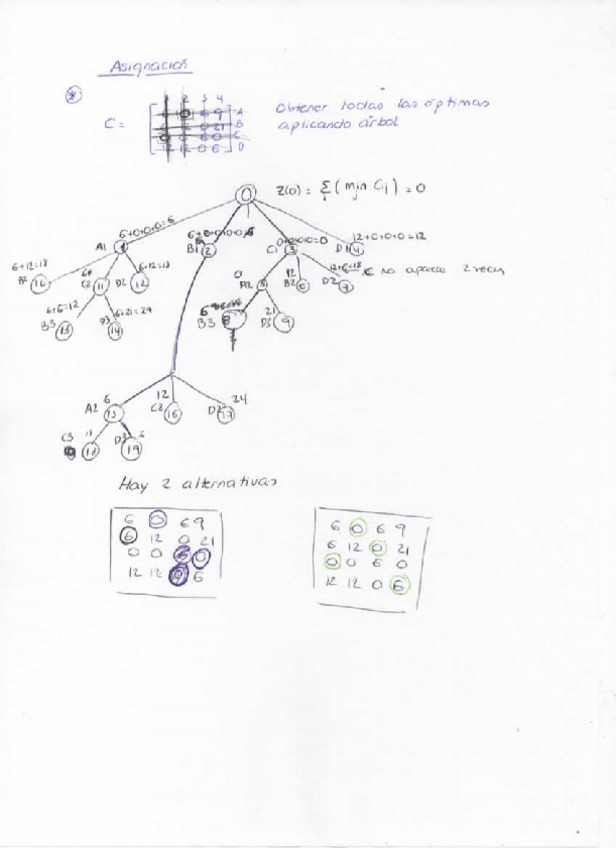 Asignación
1 2 3 4
C =
A
B
C
D
Obtener todas las óptimas
aplicando árbol
0
Z(0) = Σ(min Cij) = 0
6+0+0+0=6
0+0+0=0
12+0+0+0=12
A1
B1 2
C1 3
D1 4
6+12=18
6+12=18
0
12
12+6=18
no aparece 2 veces
B2 10
C2 11
D2 12
A2 5
B2 6
D2 7
6+6=12
6+21=27
6
21
B3 13
D3 14
B3 8
D3 9
6
12
24
A2 15
C2 16
D2 17
C3 18
D3 6
19
Hay 2 alternativas
6 0 6 9
6 12 0 21
0 0 6 0
12 12 0 6
6 0 6 9
6 12 0 21
0 0 6 0
12 12 0 6